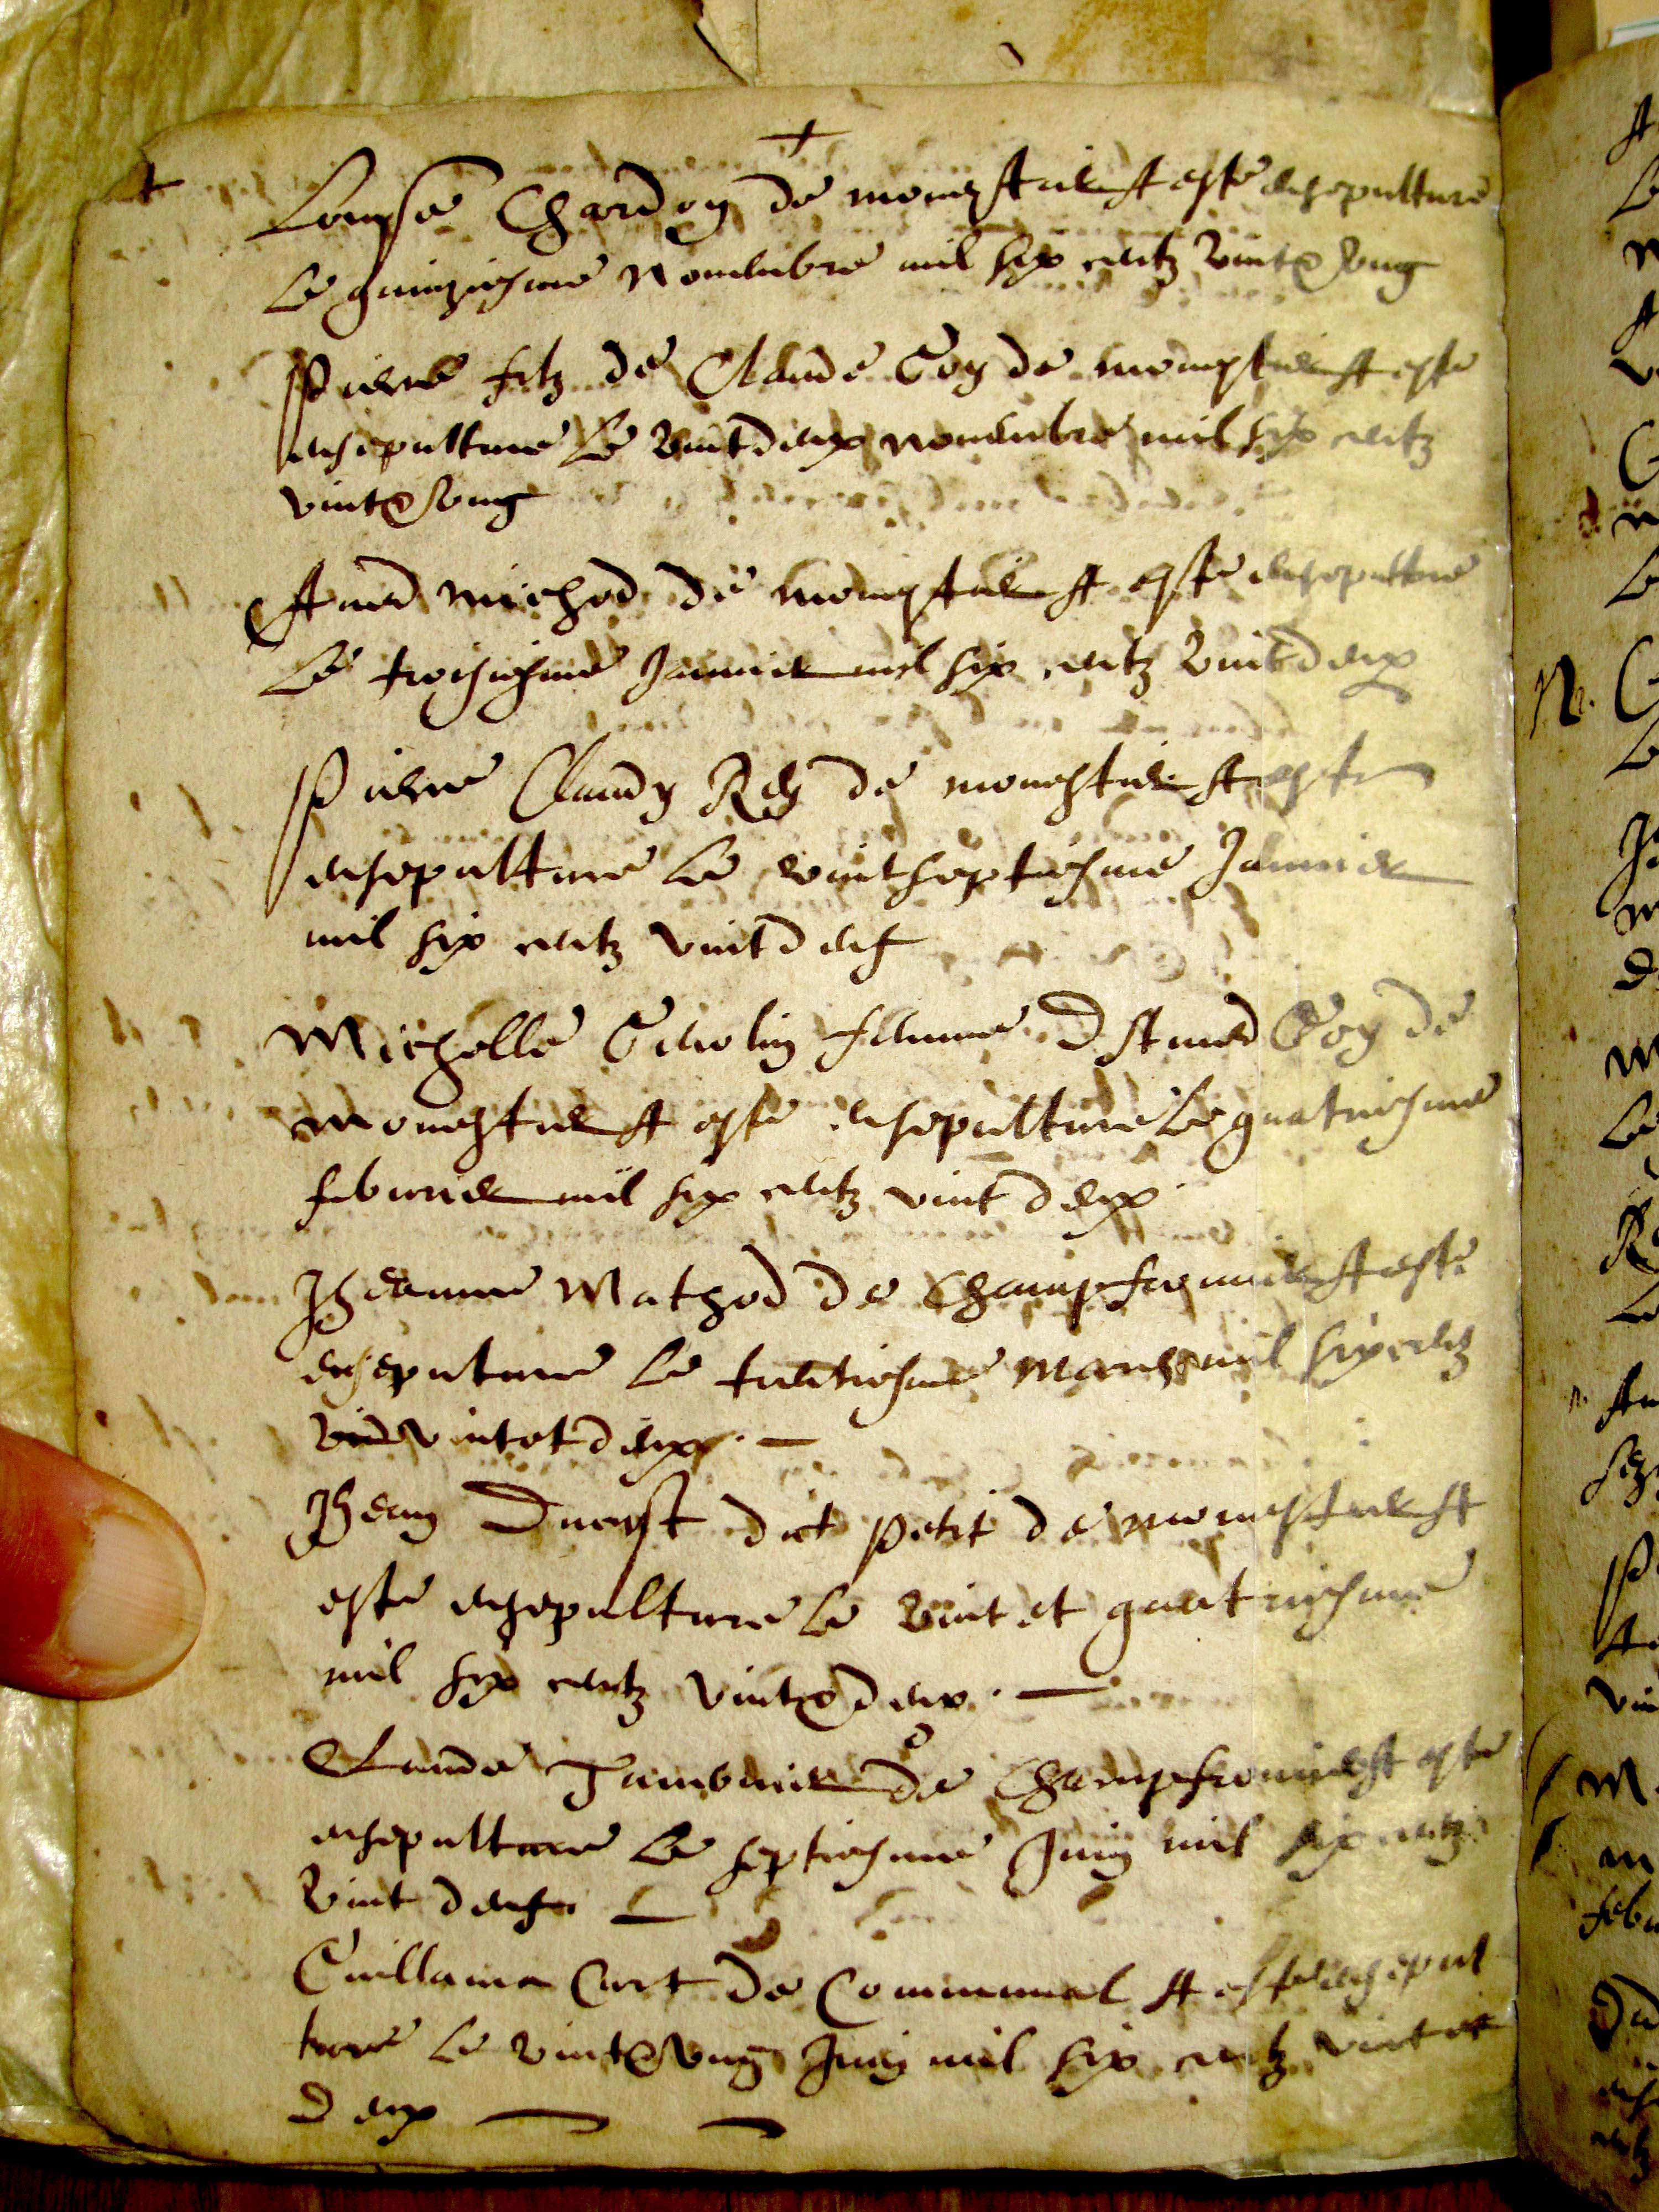 Louyse Chardon de monestier A este ensepulture
Le quinziesme Novembre mil six centz vint & ung
Pierre filz de Claude Goy de monestier A este
ensepulture Le vint deux novembre mil six centz
vint & ung
Amed michod de monestier A este ensepulture
Le troysiesme Janvier mil six centz vint deux
Pierre Claudy Rey de monestier A este
ensepulture Le vint septiesme Janvier
mil six centz vint deux
Michelle femme D Amed Goy de
monestier A este ensepulture Le quatriesme
febvrier mil six centz vint deux
Jheanne Mathod de Champfromier A este
ensepulture Le mars mil six centz
vint et deux
Jhean Ducrest dict petit de monestier A
este ensepulture Le vint et quatriesme
mil six centz vint & deux
Claude Tavernier de Champfromier A este
ensepulture Le septiesme Juing mil six centz
vint deux
Guillauma Curt de Communal A este ensepul
ture Le vint & ung Juing mil six centz vint et
deux